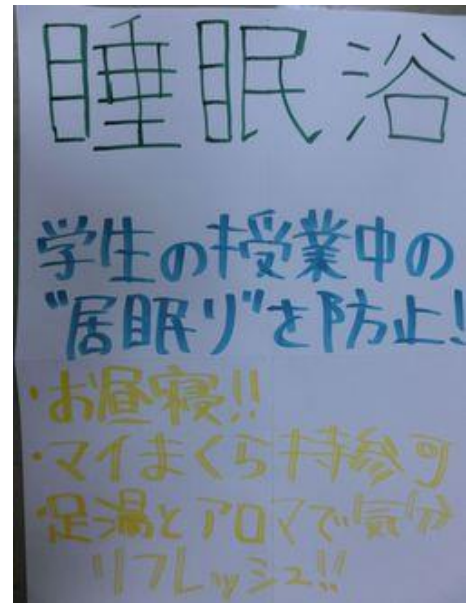 睡眠浴
学生の授業中の
"居眠り"を防止!
・お昼寝!!
・マイまくら持参可
・足湯とアロマで気分
リフレッシュ!!